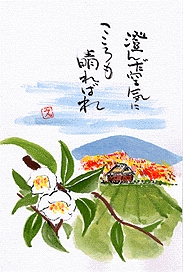 澄んだ空気に
こころも
晴ればれ